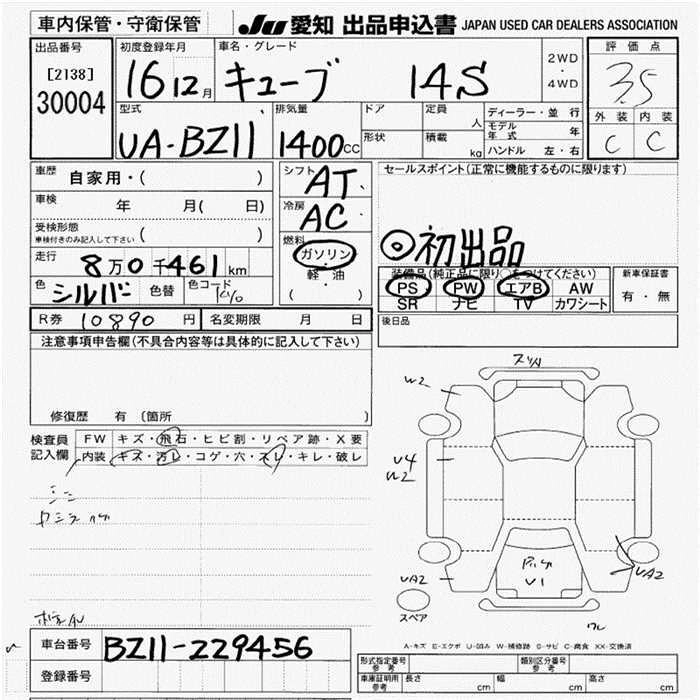 車内保管・守衛保管
JU 愛知 出品申込書 JAPAN USED CAR DEALERS ASSOCIATION
出品番号
[2138]
30004
初度登録年月
16 12月
車名・グレード
キューブ 14S
2WD
・
4WD
評価点
3.5
外装 内装
C C
型式
UA-BZ11
排気量
1400cc
ドア
形状
定員
人
積載
kg
ディーラー・並行
モデル年式 年
ハンドル 左・右
車歴
自家用・( )
車検
年 月( 日)
受検形態
車検付きのみ記入して下さい ( )
走行
8万0千461km
色
シルバー
色替
色コード
シフト
AT
冷房
AC
燃料
ガソリン
・
軽・油
( )
セールスポイント(正常に機能するものに限ります)
◎初出品
装備品(純正品に限り○をつけてください)
PS PW エアB AW
SR ナビ TV カワシート
新車保証書
有・無
R券 10890円
名変期限 月 日
後日品
注意事項申告欄(不具合内容等は具体的に記入して下さい)
修復歴 有(箇所 )
検査員記入欄
FW キズ・飛石・ヒビ割・リペア跡・X要
内装 キズ・汚レ・コゲ・穴・スレ・キレ・破レ
スリキズ
W2
U4
W2
UA2
U1
UA2
スペア
A-キズ E-エクボ U-凹み W-補修跡 S-サビ C-腐食 XX-交換済
車台番号
BZ11-229456
登録番号
形式指定番号
参考
類別区分番号
参考
車庫証明用
参考
長さ cm 幅 cm 高さ cm